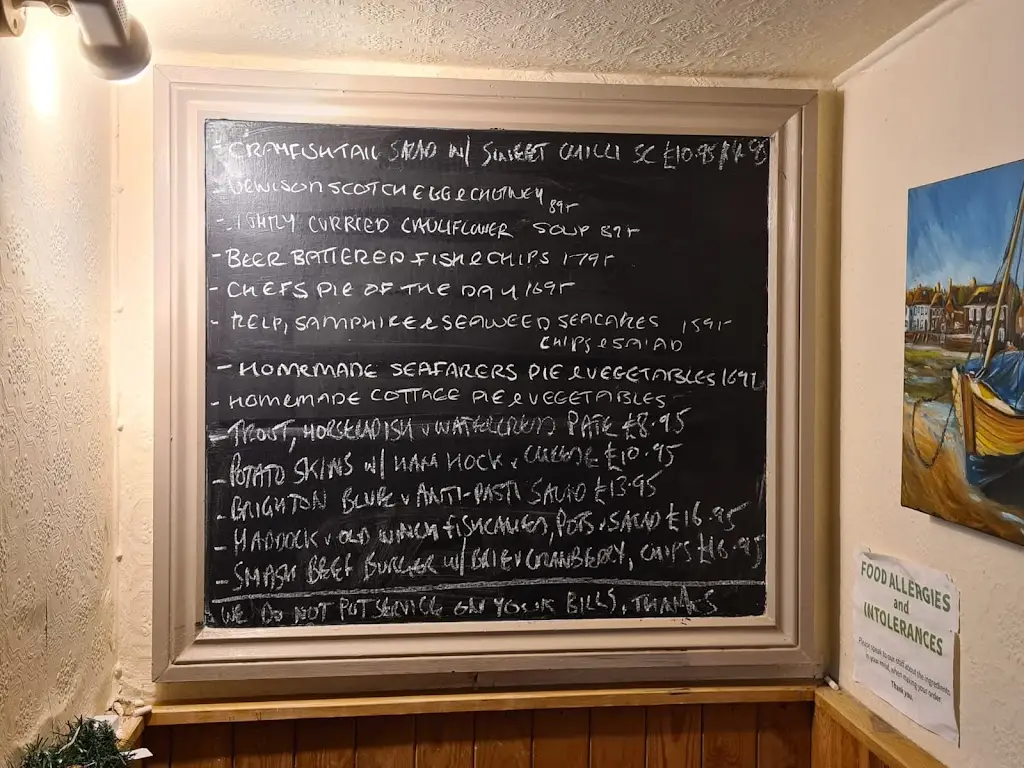 - CRAYFISH TAIL SALAD W/ SWEET CHILLI SC £10.95
- VENISON SCOTCH EGG & CHUTNEY 895
- LIGHTLY CURRIED CAULIFLOWER SOUP 895
- BEER BATTERED FISH & CHIPS 1795
- CHEFS PIE OF THE DAY 1695
- KELP, SAMPHIRE & SEAWEED SEACAKES 1595
CHIPS & SALAD
- HOMEMADE SEAFARERS PIE & VEGETABLES 1695
- HOMEMADE COTTAGE PIE & VEGETABLES
- TROUT, HORSERADISH & WATERCRESS PATE £8.95
- POTATO SKINS W/ HAM HOCK & CHEESE £10.95
- BRIGHTON BLUE & ANTI-PASTI SALAD £13.95
- HADDOCK & OLD WINCH FISHCAKES, POTS & SALAD £16.95
- SMASH BEEF BURGER W/ BRIE & CRANBERRY, CHIPS £16.95
WE DO NOT PUT SERVICE ON YOUR BILLS, THANKS
FOOD ALLERGIES
and
INTOLERANCES
Please speak to our staff about the ingredients
in your meal, when making your order.
Thank you.